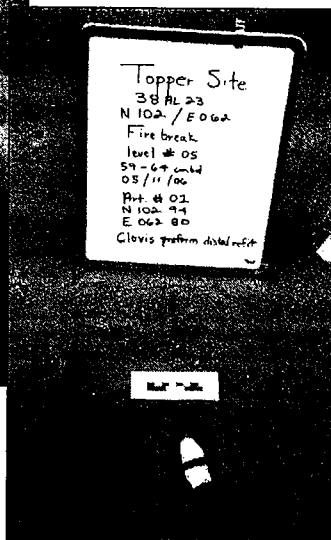 Topper Site
38 AL 23
N 102 / E 062
Firebreak
level # 05
59-64 cmbd
05/11/06
Art. # 01
N 102 94
E 062 80
Clovis preform distal refit